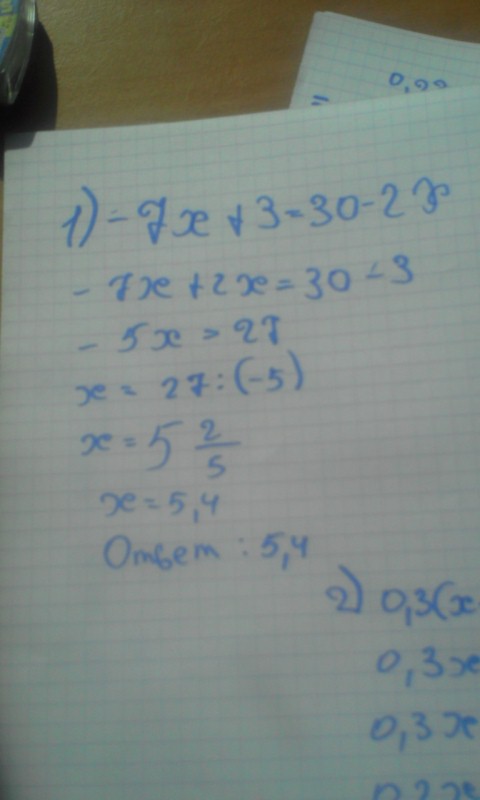 = 0,00
1) - 7x + 3 = 30 - 2x
- 7x + 2x = 30 - 3
- 5x = 27
x = 27 : (-5)
x = 5 2/5
x = 5,4
Ответ : 5,4
2) 0,3(x
0,3x
0,3x